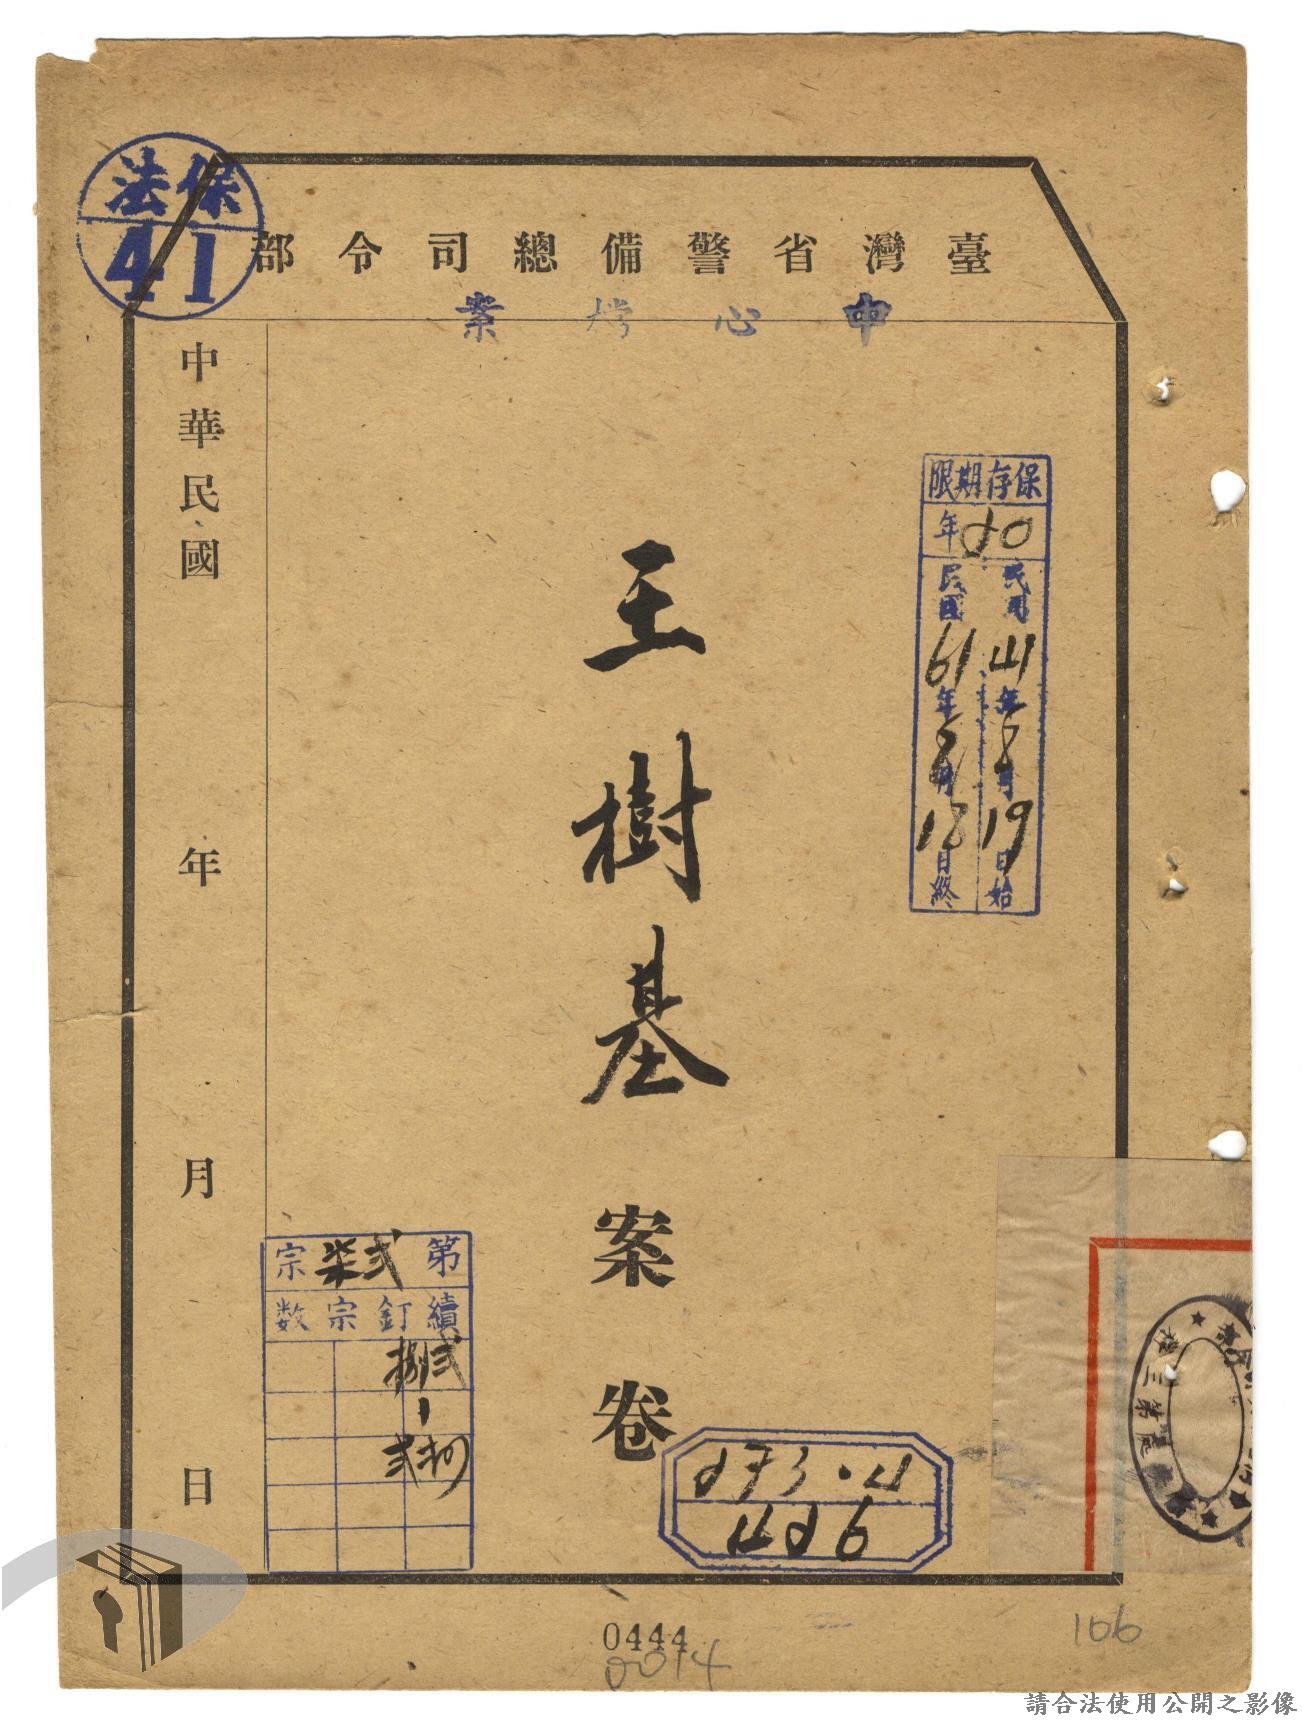 保法
41
臺灣省警備總司令部
中心檔案
中華民國 年 月 日
保存期限
20年
民國41年8月19日始
民國61年8月18日終
王樹基案卷
第弍柒宗
續釘宗数
弍捌
273.4
426
第三
0444
0014
106
請合法使用公開之影像